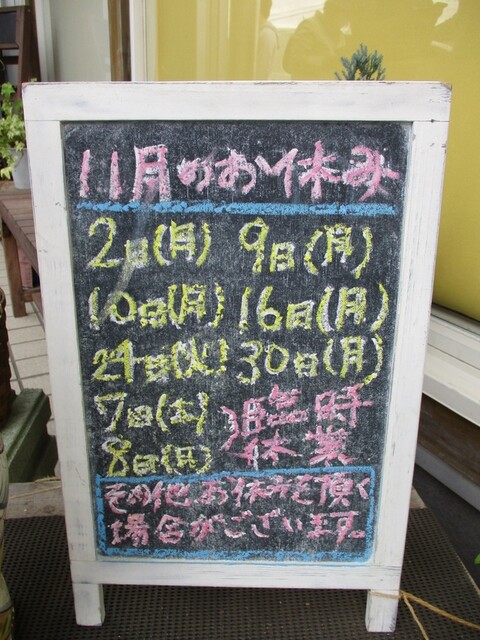 11月のお休み
2日(月) 9日(月)
10日(月) 16日(月)
24日(火) 30日(月)
7日(土) 臨時
8日(月) 休業
その他お休みを頂く
場合がございます。